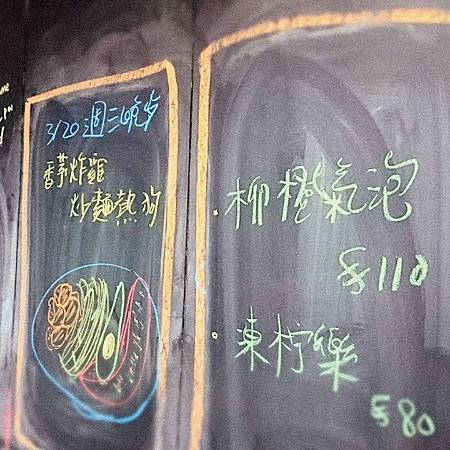 3/20 週二晚步
香茅炸雞
炒麵熱狗
·柳橙氣泡
$110
·凍柠樂
$80